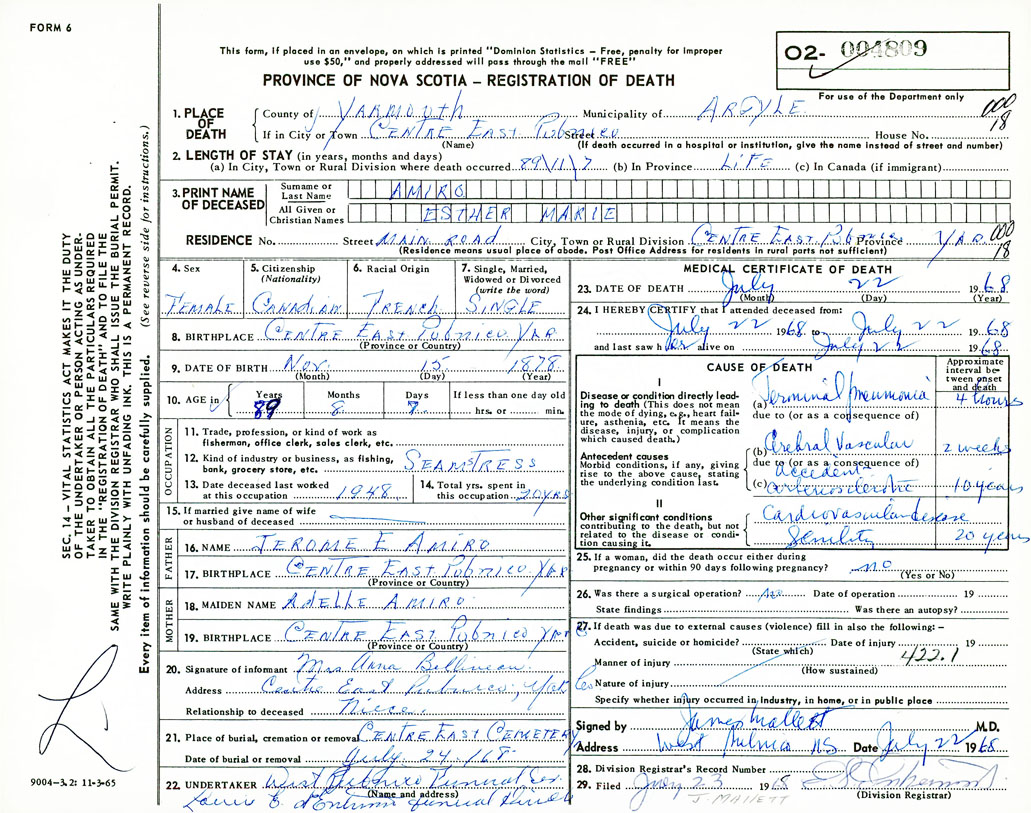 FORM 6
This form, if placed in an envelope, on which is printed "Dominion Statistics – Free, penalty for improper
use $50," and properly addressed will pass through the mail "FREE"
PROVINCE OF NOVA SCOTIA – REGISTRATION OF DEATH
02- 004809
For use of the Department only
000
18
1. PLACE OF DEATH
County of YARMOUTH Municipality of ARGYLE
If in City or Town CENTRE EAST PUBNICO Street House No.
(Name) (If death occurred in a hospital or institution, give the name instead of street and number)
2. LENGTH OF STAY (in years, months and days)
(a) In City, Town or Rural Division where death occurred 89/11/7 (b) In Province LIFE (c) In Canada (if immigrant)
3. PRINT NAME OF DECEASED
Surname or Last Name AMIRO
All Given or Christian Names ESTHER MARIE
RESIDENCE No. Street MAIN ROAD City, Town or Rural Division CENTRE EAST PUBNICO Province YAR 000
18
(Residence means usual place of abode. Post Office Address for residents in rural parts not sufficient)
4. Sex FEMALE
5. Citizenship (Nationality) CANADIAN
6. Racial Origin FRENCH
7. Single, Married, Widowed or Divorced (write the word) SINGLE
8. BIRTHPLACE CENTRE EAST PUBNICO YAR
(Province or Country)
9. DATE OF BIRTH Nov. 15 1878
(Month) (Day) (Year)
10. AGE in Years Months Days If less than one day old
89 8 7 hrs. or min.
OCCUPATION
11. Trade, profession, or kind of work as
fisherman, office clerk, sales clerk, etc.
12. Kind of industry or business, as fishing,
bank, grocery store, etc. SEAMTRESS
13. Date deceased last worked
at this occupation 1948
14. Total yrs. spent in
this occupation 20 YRS
15. If married give name of wife
or husband of deceased
FATHER
16. NAME JEROME E AMIRO
17. BIRTHPLACE CENTRE EAST PUBNICO YAR
(Province or Country)
MOTHER
18. MAIDEN NAME ADELLE AMIRO
19. BIRTHPLACE CENTRE EAST PUBNICO YAR
(Province or Country)
20. Signature of informant Mrs Anna Belliveau
Address Centre East Pubnico, Yar
Relationship to deceased Niece
21. Place of burial, cremation or removal CENTRE EAST CEMETERY
Date of burial or removal July 24/68
22. UNDERTAKER West Pubnico Funeral Co.
(Name and address)
d'Entremont Funeral
MEDICAL CERTIFICATE OF DEATH
23. DATE OF DEATH July 22 1968
(Month) (Day) (Year)
24. I HEREBY CERTIFY that I attended deceased from:
July 22 1968 to July 22 1968
and last saw her alive on July 22 1968
CAUSE OF DEATH
Approximate interval between onset and death
I
Disease or condition directly leading to death (This does not
mean the mode of dying, e.g., heart failure, asthenia, etc. It means the
disease, injury, or complication
which caused death.)
(a) Terminal pneumonia 4 hours
due to (or as a consequence of)
Antecedent causes
Morbid conditions, if any, giving
rise to the above cause, stating
the underlying condition last.
(b) Cerebral Vascular 2 weeks
due to (or as a consequence of)
accident
(c) arteriosclerotic 10 years
II
Other significant conditions
contributing to the death, but not
related to the disease or condition causing it.
Cardiovascular disease
Senility 20 years
25. If a woman, did the death occur either during
pregnancy or within 90 days following pregnancy? no
(Yes or No)
26. Was there a surgical operation? no Date of operation 19
State findings Was there an autopsy?
27. If death was due to external causes (violence) fill in also the following: –
Accident, suicide or homicide? Date of injury 19
(State which) 422.1
Manner of injury
(How sustained)
Nature of injury
Specify whether injury occurred in Industry, in home, or in public place
Signed by James Mallett M.D.
Address West Pubnico NS Date July 22 1968
28. Division Registrar's Record Number
29. Filed July 23 1968
J. MALLETT (Division Registrar)
SEC. 14 – VITAL STATISTICS ACT MAKES IT THE DUTY
OF THE UNDERTAKER OR PERSON ACTING AS UNDER-
TAKER TO OBTAIN ALL THE PARTICULARS REQUIRED
IN THE "REGISTRATION OF DEATH" AND TO FILE THE
SAME WITH THE DIVISION REGISTRAR WHO SHALL ISSUE THE BURIAL PERMIT.
WRITE PLAINLY WITH UNFADING INK. THIS IS A PERMANENT RECORD.
Every item of information should be carefully supplied. (See reverse side for instructions.)
9004-3.2: 11-3-65